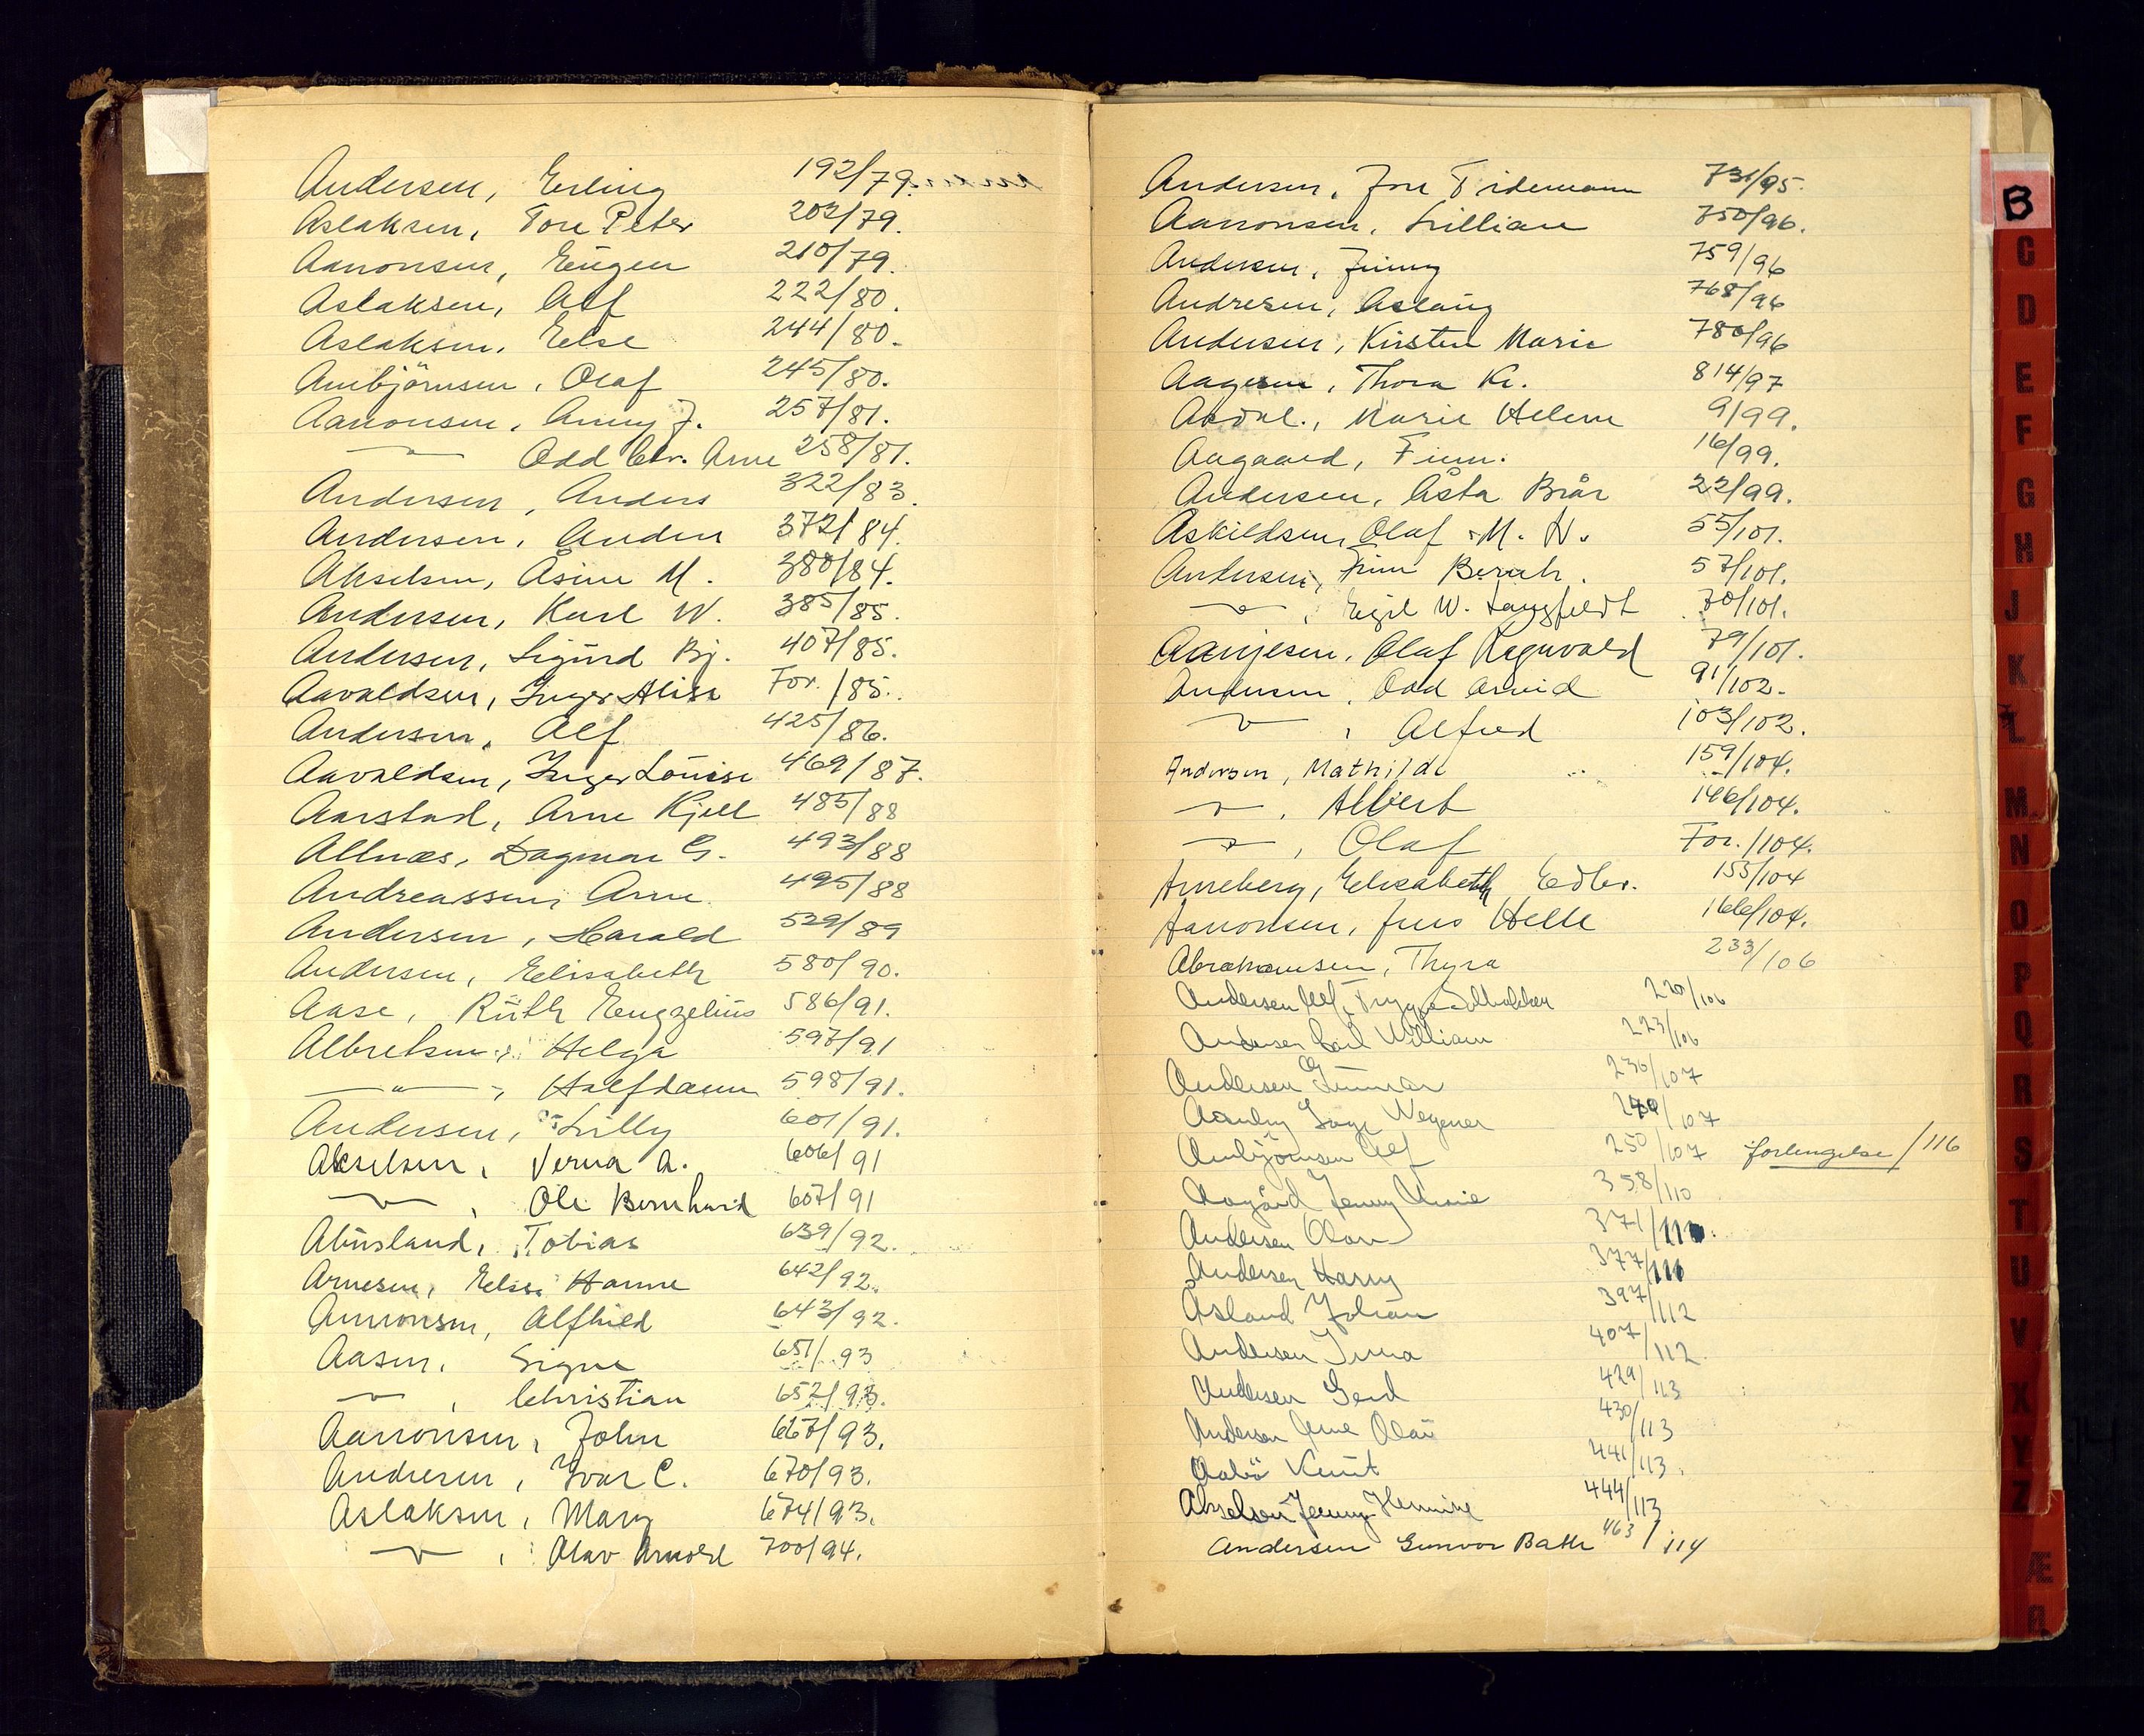 Andersen, Erling 192/79.
Aslaksen, Tore Peter 202/79.
Aanonsen, Eugen 210/79.
Aslaksen, Alf 222/80.
Aslaksen, Else 244/80.
Ambjörnsen, Olaf 245/80.
Aanonsen, Anny J. 257/81.
— " — Odd Chr. Arne 258/81.
Andersen, Anders 322/83.
Andersen, Anders 372/84.
Akselsen, Åsine M. 380/84.
Andersen, Karl W. 385/85.
Andersen, Sigurd Bj. 407/85.
Aavaldsen, Inger Alise For. /85.
Andersen, Alf 425/86.
Aavaldsen, Inger Louise 469/87.
Aarstad, Arne Kjell 485/88
Allnæs, Dagmar G. 493/88
Andreassen, Arne 495/88
Andersen, Harald 529/89
Andersen, Elisabeth 580/90.
Aase, Ruth Engzelius 586/91.
Albretsen, Helga 597/91
— " —, Halfdann 598/91.
Andersen, Lilly 601/91.
Akselsen, Verna A. 606/91
— " —, Ole Bernhard 607/91
Abusland, Tobias 639/92.
Arnesen, Else Hanne 642/92.
Aanonsen, Alfhild 643/92.
Aasen, Signe 651/93
— " —, Christian 652/93.
Aanonsen, John 667/93.
Andresen, Ivar C. 670/93.
Aslaksen, Mary 674/93.
— " —, Olav Arnold 700/94.
Andersen, Jon Tidemann 731/95.
Aanonsen, Lillian 750/96.
Andersen, Jenny 759/96
Andresen, Aslaug 768/96
Andersen, Kirsten Marie 780/96
Aagesen, Thora Kr. 814/97
Marie Helene 9/99.
Aagaard, Finn. 16/99.
Andersen, Åsta Brår 22/99.
Askildsen, Olaf M. N. 55/101.
Andersen, Finn Bernh. 57/101.
— " —, Egil W. Langfeldt 70/101.
Aanjesen, Olaf Ragnvald 79/101.
Andersen, Odd Arvid 91/102.
— " —, Alfred 103/102.
Andersen, Mathilde 159/104.
— " —, Albert 146/104.
— " —, Olaf For./104.
Anneberg, Elisabeth Edler. 155/104
Aanonsen, Jens Helle 166/104.
Abrahamsen, Thyra 233/106
Andersen Alf Trygve 220/106
Andersen Carl William 223/106
Andersen Gunnar 236/107
Wegener /107
Ambjörnsen Alf 250/107 forlengelse/116
Aagård Jenny Marie 358/110
Andersen Olav 371/111.
Andersen Harry 377/111
Åsland Johan 397/112
Andersen Irma 407/112
Andersen Gerd 429/113
Andersen Arne Olav 430/113
Aabö Knut 441/113.
Akselsen Jenny Hermine 444/113
Andersen Gunvor Bath 463/114
B
C
D
E
F
G
H
J
K
L
M
N
O
P
Q
R
S
T
U
V
X
Y
Z
Æ